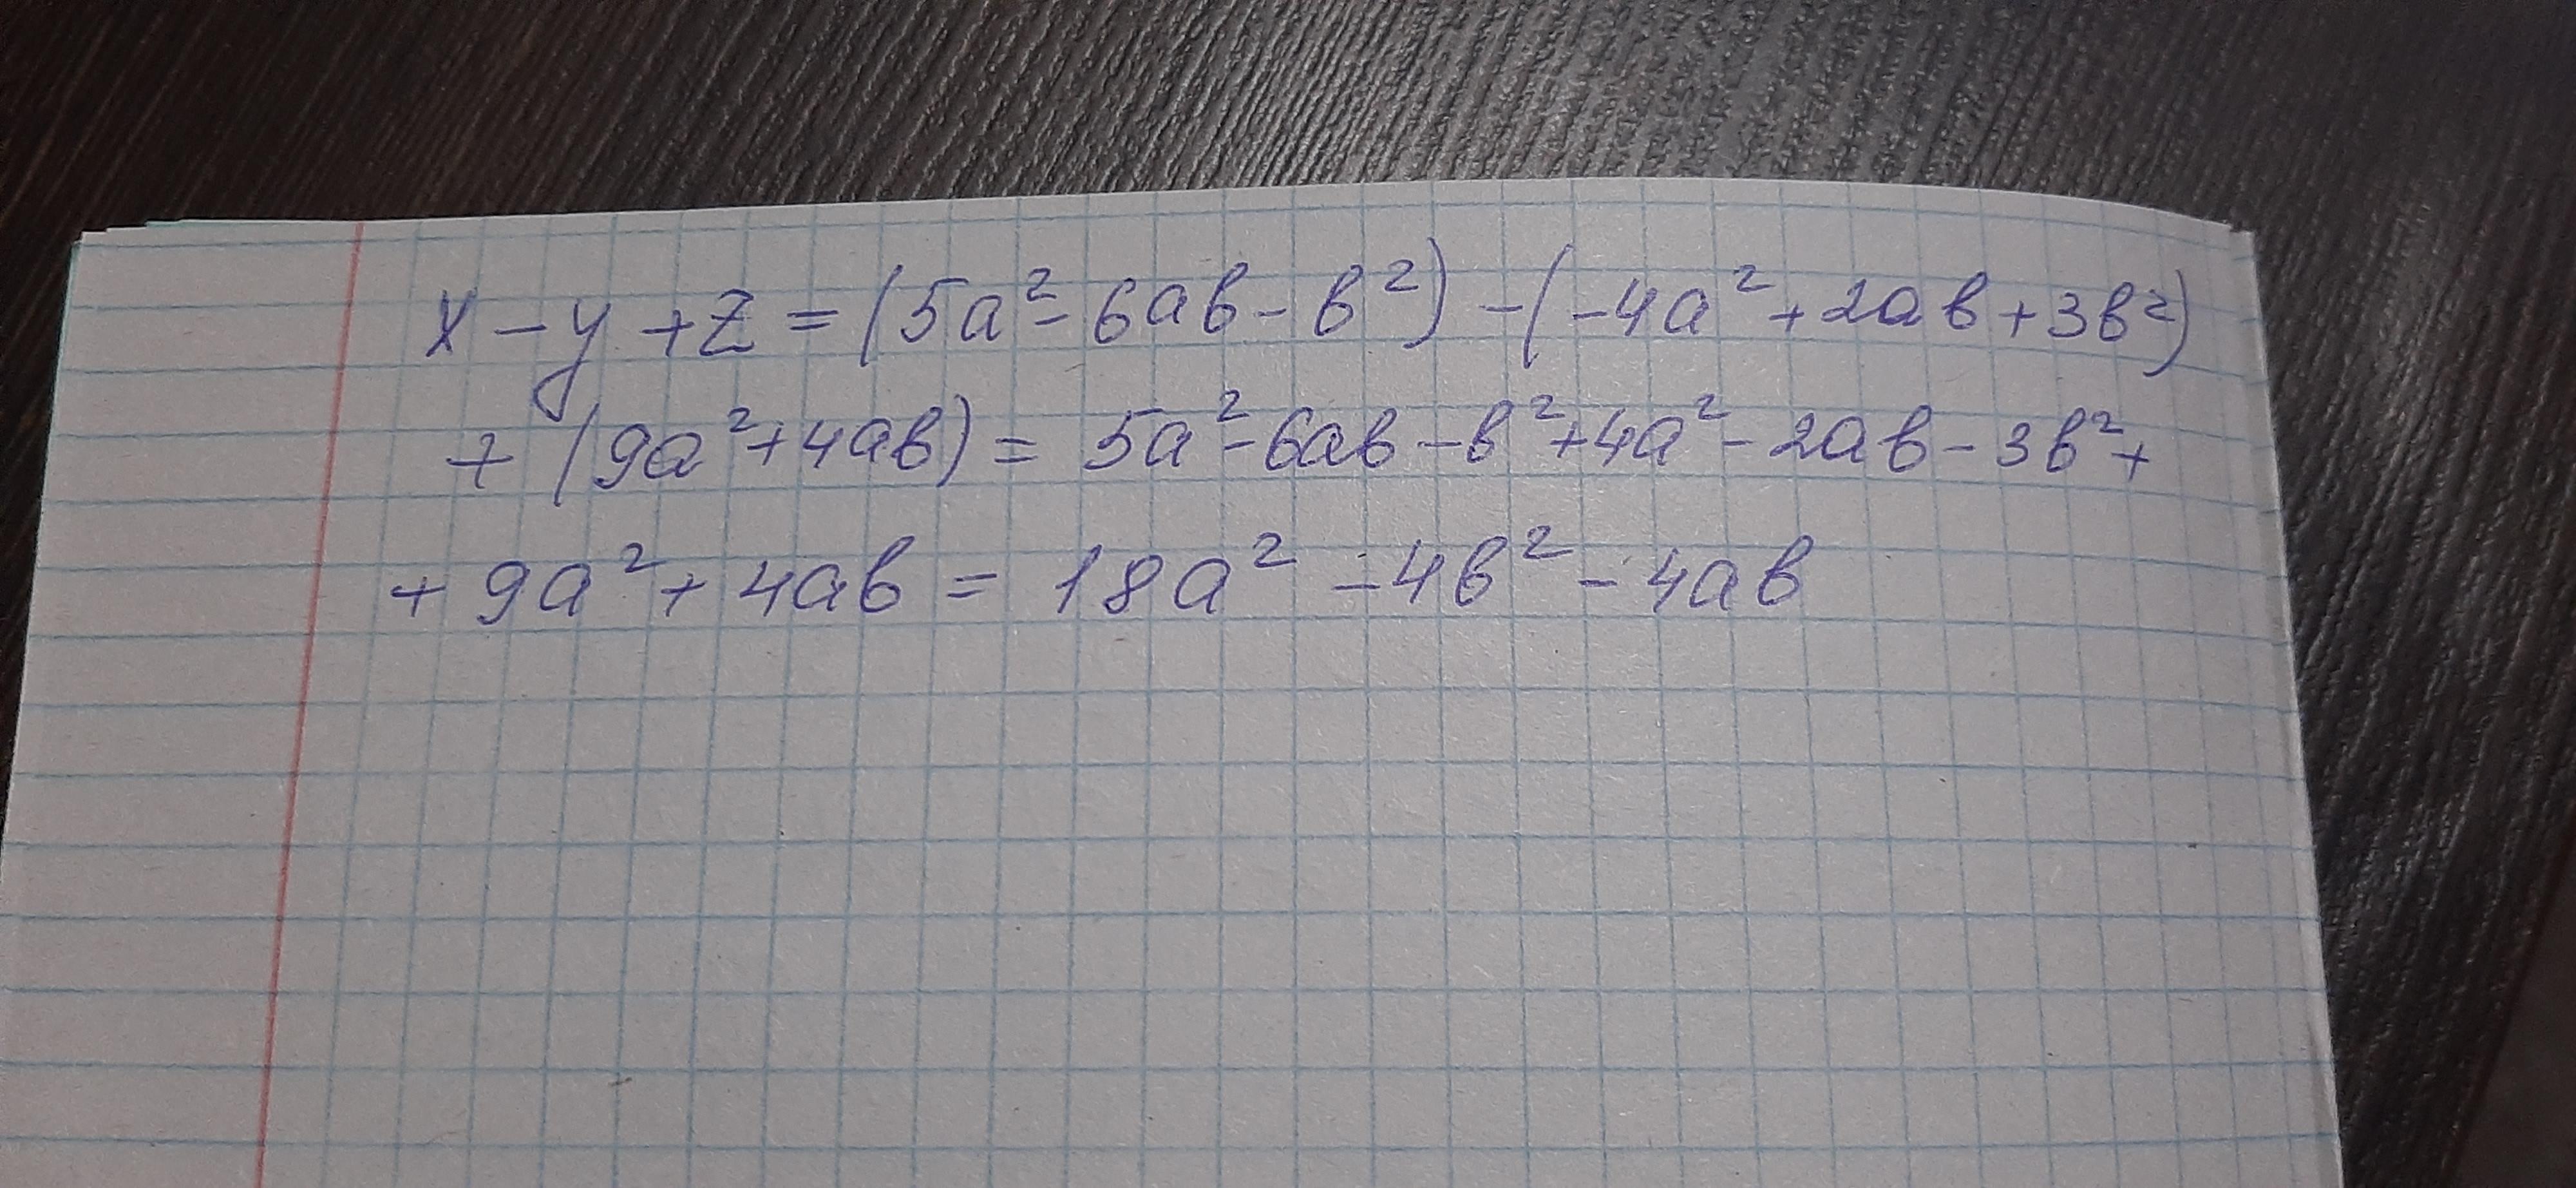 x - y + z = (5a² - 6ab - b²) - (-4a² + 2ab + 3b²)
+ (9a² + 4ab) = 5a² - 6ab - b² + 4a² - 2ab - 3b² +
+ 9a² + 4ab = 18a² - 4b² - 4ab